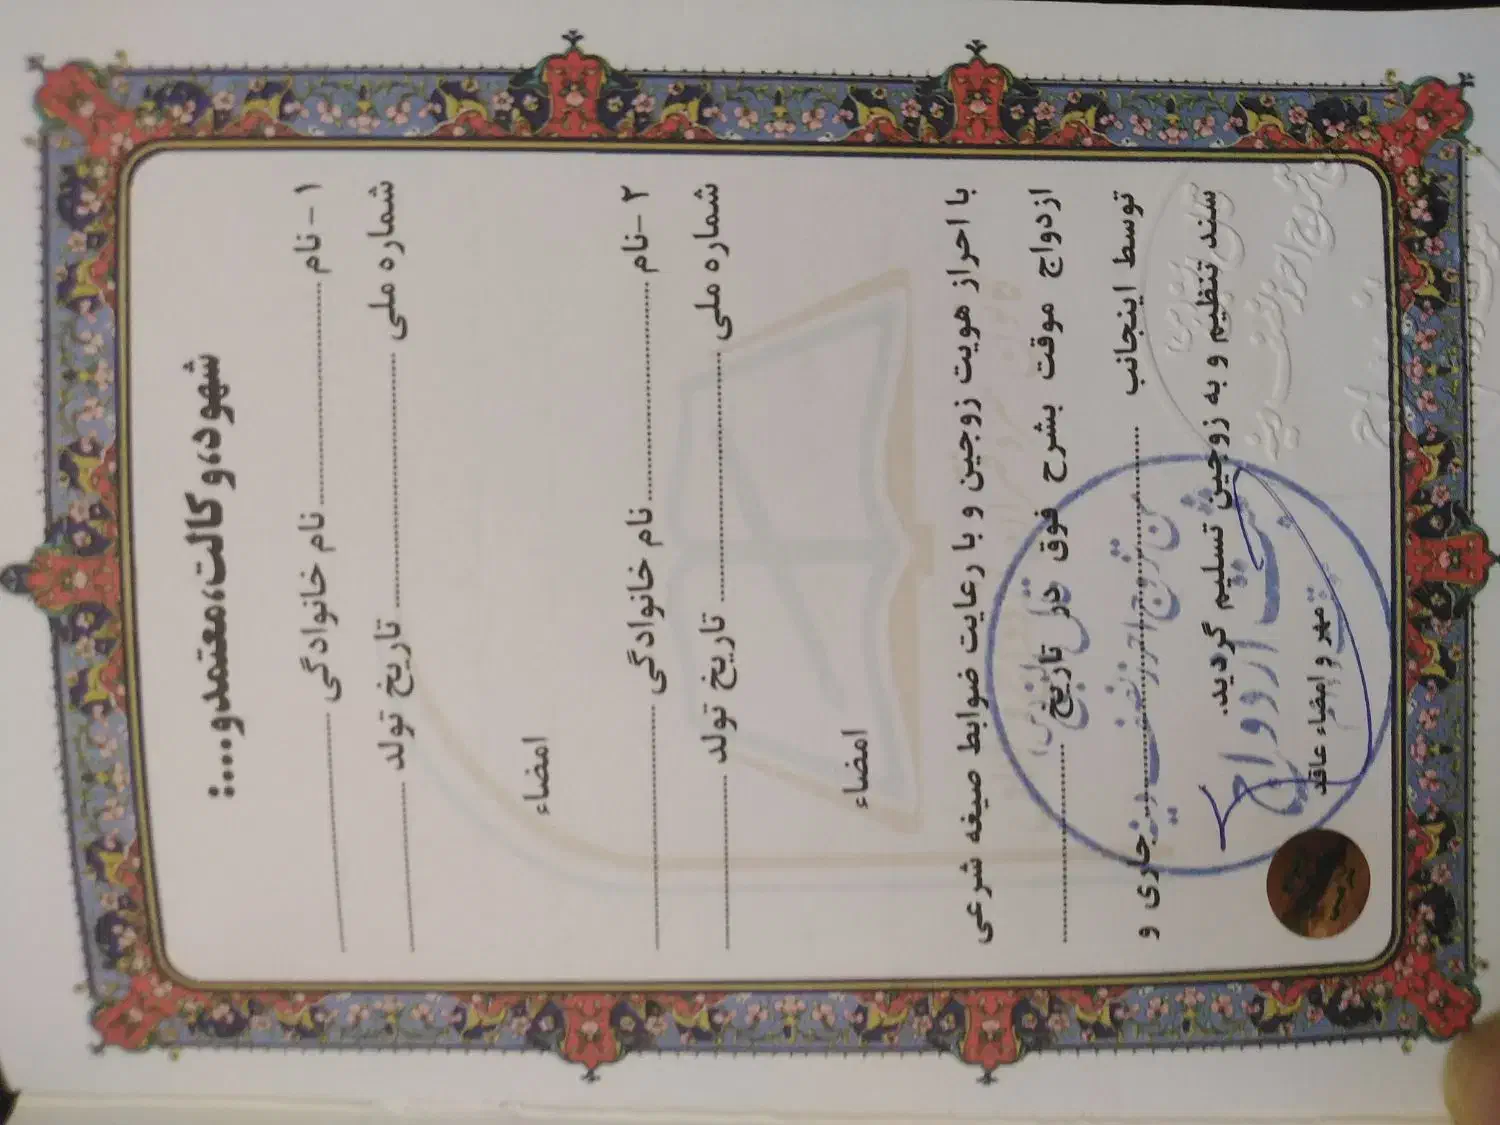 شهود، وکالت، معتمد و....:
۱- نام .......... نام خانوادگی ..........
شماره ملی .......... تاریخ تولد ..........
امضاء
۲- نام .......... نام خانوادگی ..........
شماره ملی .......... تاریخ تولد ..........
امضاء
با احراز هویت زوجین و با رعایت ضوابط صیغه شرعی
ازدواج موقت بشرح فوق در تاریخ ..........
توسط اینجانب .......... جاری و
سند تنظیم و به زوجین تسلیم گردید.
مهر و امضاء عاقد
ازدواج